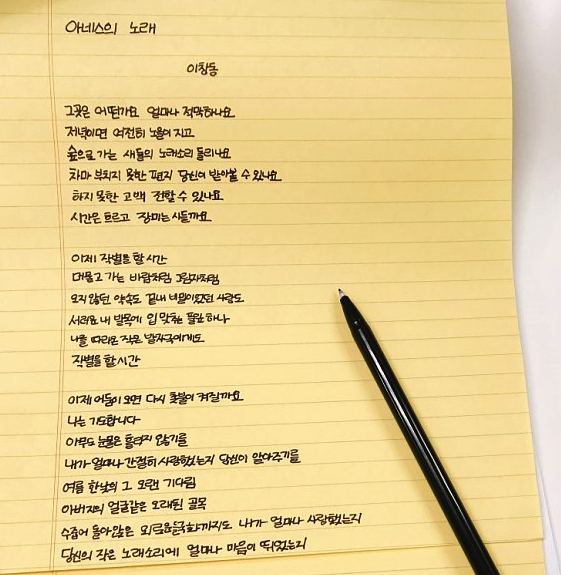 아네스의 노래
이창동
그곳은 어떤가요 얼마나 적막하나요
저녁이면 여전히 노을이 지고
숲으로 가는 새들의 노래소리 들리나요
차마 부치지 못한 편지 당신이 받아볼 수 있나요
하지 못한 고백 전할 수 있나요
시간은 흐르고 장미는 시들까요
이제 작별을 할 시간
머물고 가는 바람처럼 그림자처럼
오지 않던 약속도 끝내 비밀이었던 사랑도
서러운 내 발목에 입 맞추는 풀잎 하나
나를 따라온 작은 발자국에게도
작별을 할 시간
이제 어둠이 오면 다시 촛불이 켜질까요
나는 기도합니다
아무도 눈물은 흘리지 않기를
내가 얼마나 간절히 사랑했는지 당신이 알아주기를
여름 한낮의 그 오랜 기다림
아버지의 얼굴같은 오래된 골목
수줍어 돌아앉은 외로운 들국화까지도 내가 얼마나 사랑했는지
당신의 작은 노래소리에 얼마나 마음이 뛰었는지